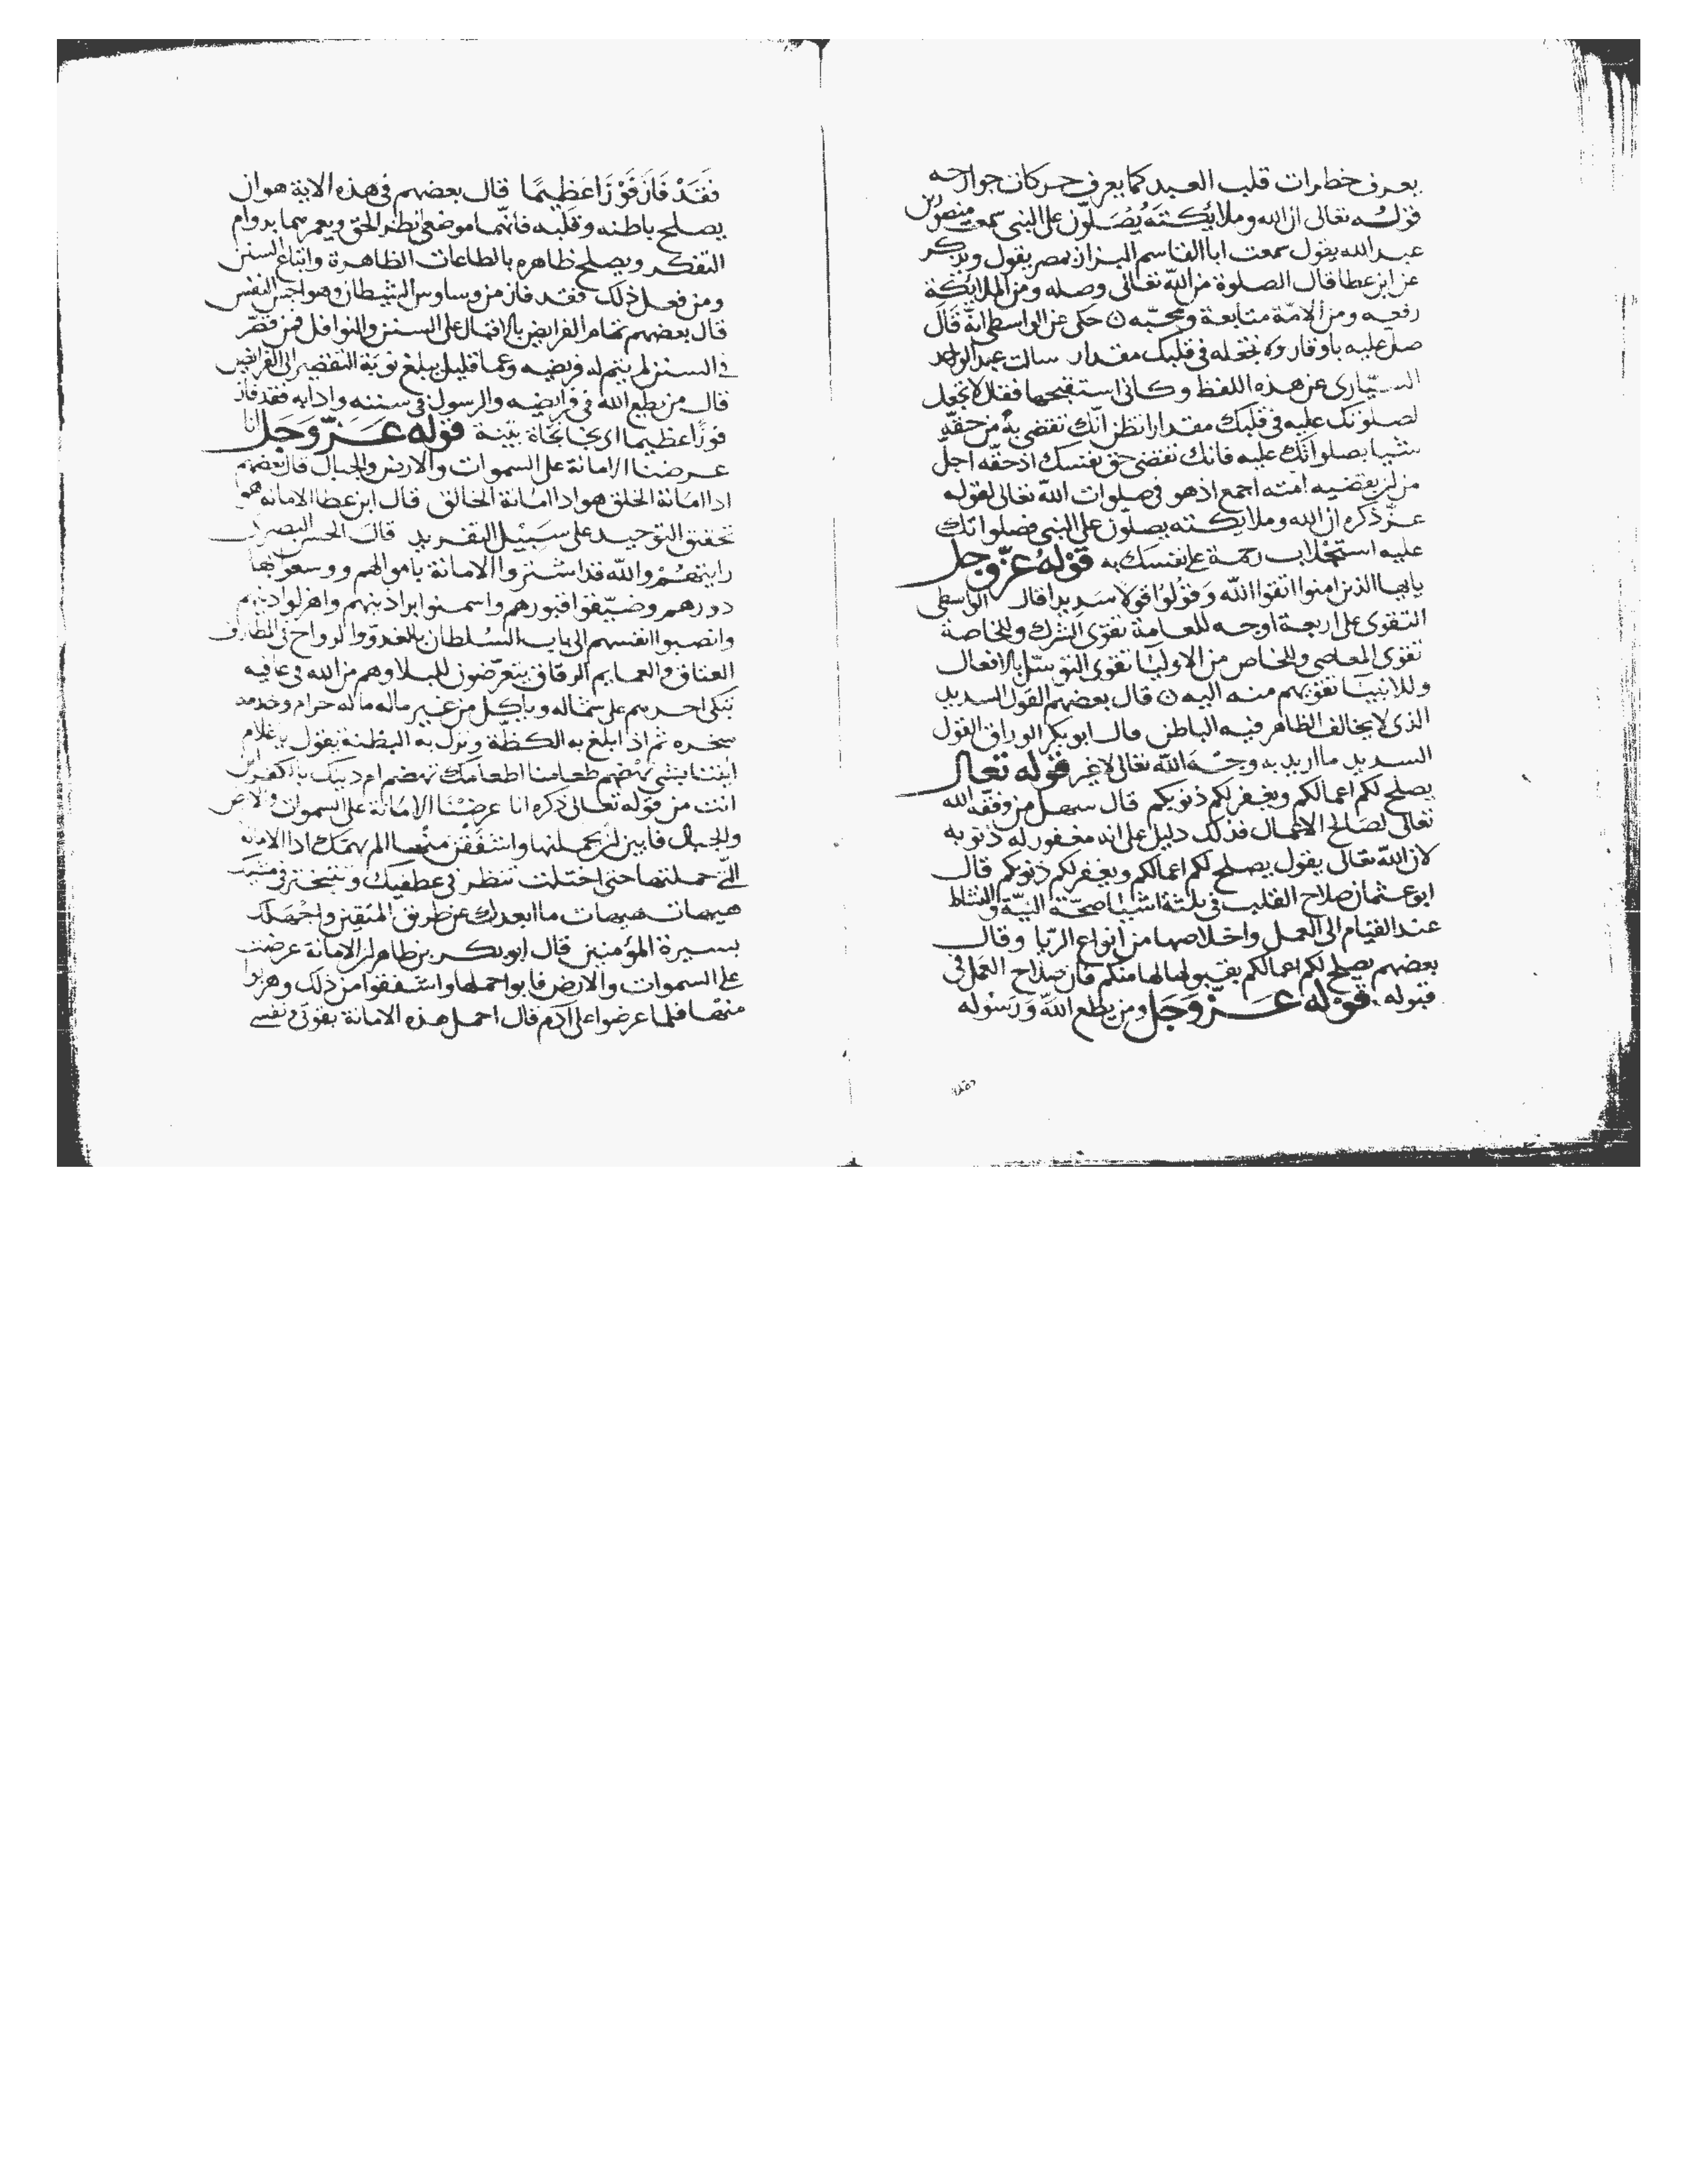 يعرف خطرات قلب العبد كما يعرف حركات جوارحه
قوله تعالى ان الله وملائكته يصلون على النبي سمعت منصور بن
عبد الله يقول سمعت ابا القاسم البزاز بمصر يقول ويذكر
عن ابن عطا قال الصلوة من الله تعالى وصله ومن الملائكة
رفعه ومن الامة متابعة ومحبه ن حكى عن الواسطي انه قال
صل عليه باوقار ولا تجعله في قلبك مقدار سالت عبد الواحد
السياري عن هذه اللفظ وكاني استقبحها فقال لا تجعل
لصلوتك عليه في قلبك مقدارا تظن انك تقضي به من حقه
شيا بصلواتك عليه فانك تقضي حق نفسك اذ حقه اجل
من ان يقضيه امته اجمع اذ هو في صلوات الله تعالى لقوله
عز ذكره ان الله وملايكته يصلون على النبي فصلواتك
عليه استجلاب رحمة على نفسك به قوله عز وجل
يايها الذين امنوا اتقوا الله وقولوا قولا سديدا قال الواسطي
التقوى على اربعة اوجه للعامة تقوى الشرك وللخاصة
تقوى المعاصي وللخاص من الاوليا تقوى التوسل بالافعال
وللانبيا تقويهم منه اليه ن قال بعضهم القول السديد
الذي لا يخالف الظاهر فيه الباطن قال ابو بكر الوراق القول
السديد ما اريد به وجه الله تعالى لا غير قوله تعالى
يصلح لكم اعمالكم ويغفر لكم ذنوبكم قال سهل من وفقه الله
تعالى لصالح الاعمال فذلك دليل على انه مغفور له ذنوبه
لان الله تعالى يقول يصلح لكم اعمالكم ويغفر لكم ذنوبكم قال
ابو عثمان صلاح القلب في ثلثة اشيا صحة النية والنشاط
عند القيام الى العمل واخلاصها من انواع الريا وقال
بعضهم يصلح لكم اعمالكم بقبولها لها منكم فان صلاح العمل في
قبوله قوله عز وجل ومن يطع الله ورسوله
فقد
فقد فاز فوزا عظيما قال بعضهم في هذه الاية هو ان
يصلح باطنه وقلبه فانهما موضعي نظر الحق ويعمرهما بدوام
التفكر ويصلح ظاهره بالطاعات الظاهرة واتباع السنن
ومن فعل ذلك فقد فاز من وساوس الشيطان وهواجس النفس
قال بعضهم تمام الفرايض بالاقبال على السنن والنوافل فمن قصر
في السنن لم يتم له فريضه وعما قليل يبلغ نوبة التقصير الى الفرايض
قال من يطع الله في فرايضه والرسول في سننه وادابه فقد فاز
فوزا عظيما اي نجا نجاة بينة قوله عز وجل انا
عرضنا الامانة على السموات والارض والجبال قال بعضهم
ادا امانة الخلق هو ادا امانة الخالق قال ابن عطا الامانة هو
تحقيق التوحيد على سبيل التفريد قال الحسن البصري
رايتهم والله قد اشتروا الامانة باموالهم ووسعوا بها
دورهم وضيقوا قبورهم واسمنوا براذينهم واهزلوا دينهم
وانصبوا انفسهم الى باب السلطان بالغدو والرواح في المطارف
العتاق والعمايم الرقاق يتعرضون للبلا وهم من الله في عافيه
يتكي احدهم على شماله وياكل من غير ماله ماله حرام وخدمه
سخره ثم اذا بلغ به الكظة ونزل به البطنة يقول يا غلام
ايتنا بشي يهضم طعامنا اطعامك تهضم ام دينك يا لكع اين
انت من قوله تعالى ذكره انا عرضنا الامانة على السموات والارض
والجبال فابين ان يحملنها واشفقن منها الم يهمك ادا الامانة
التي حملتها حتى اختلت تنظر في عطفيك وتتبختر في مشيك
هيهات هيهات ما ابعدك عن طريق المتقين واجهلك
بسيرة المؤمنين قال ابو بكر بن طاهر ان الامانة عرضت
على السموات والارض فابوا حملها واشفقوا من ذلك وهربوا
منها فلما عرضوا على ادم قال احمل هذه الامانة بقوتي ونفسي